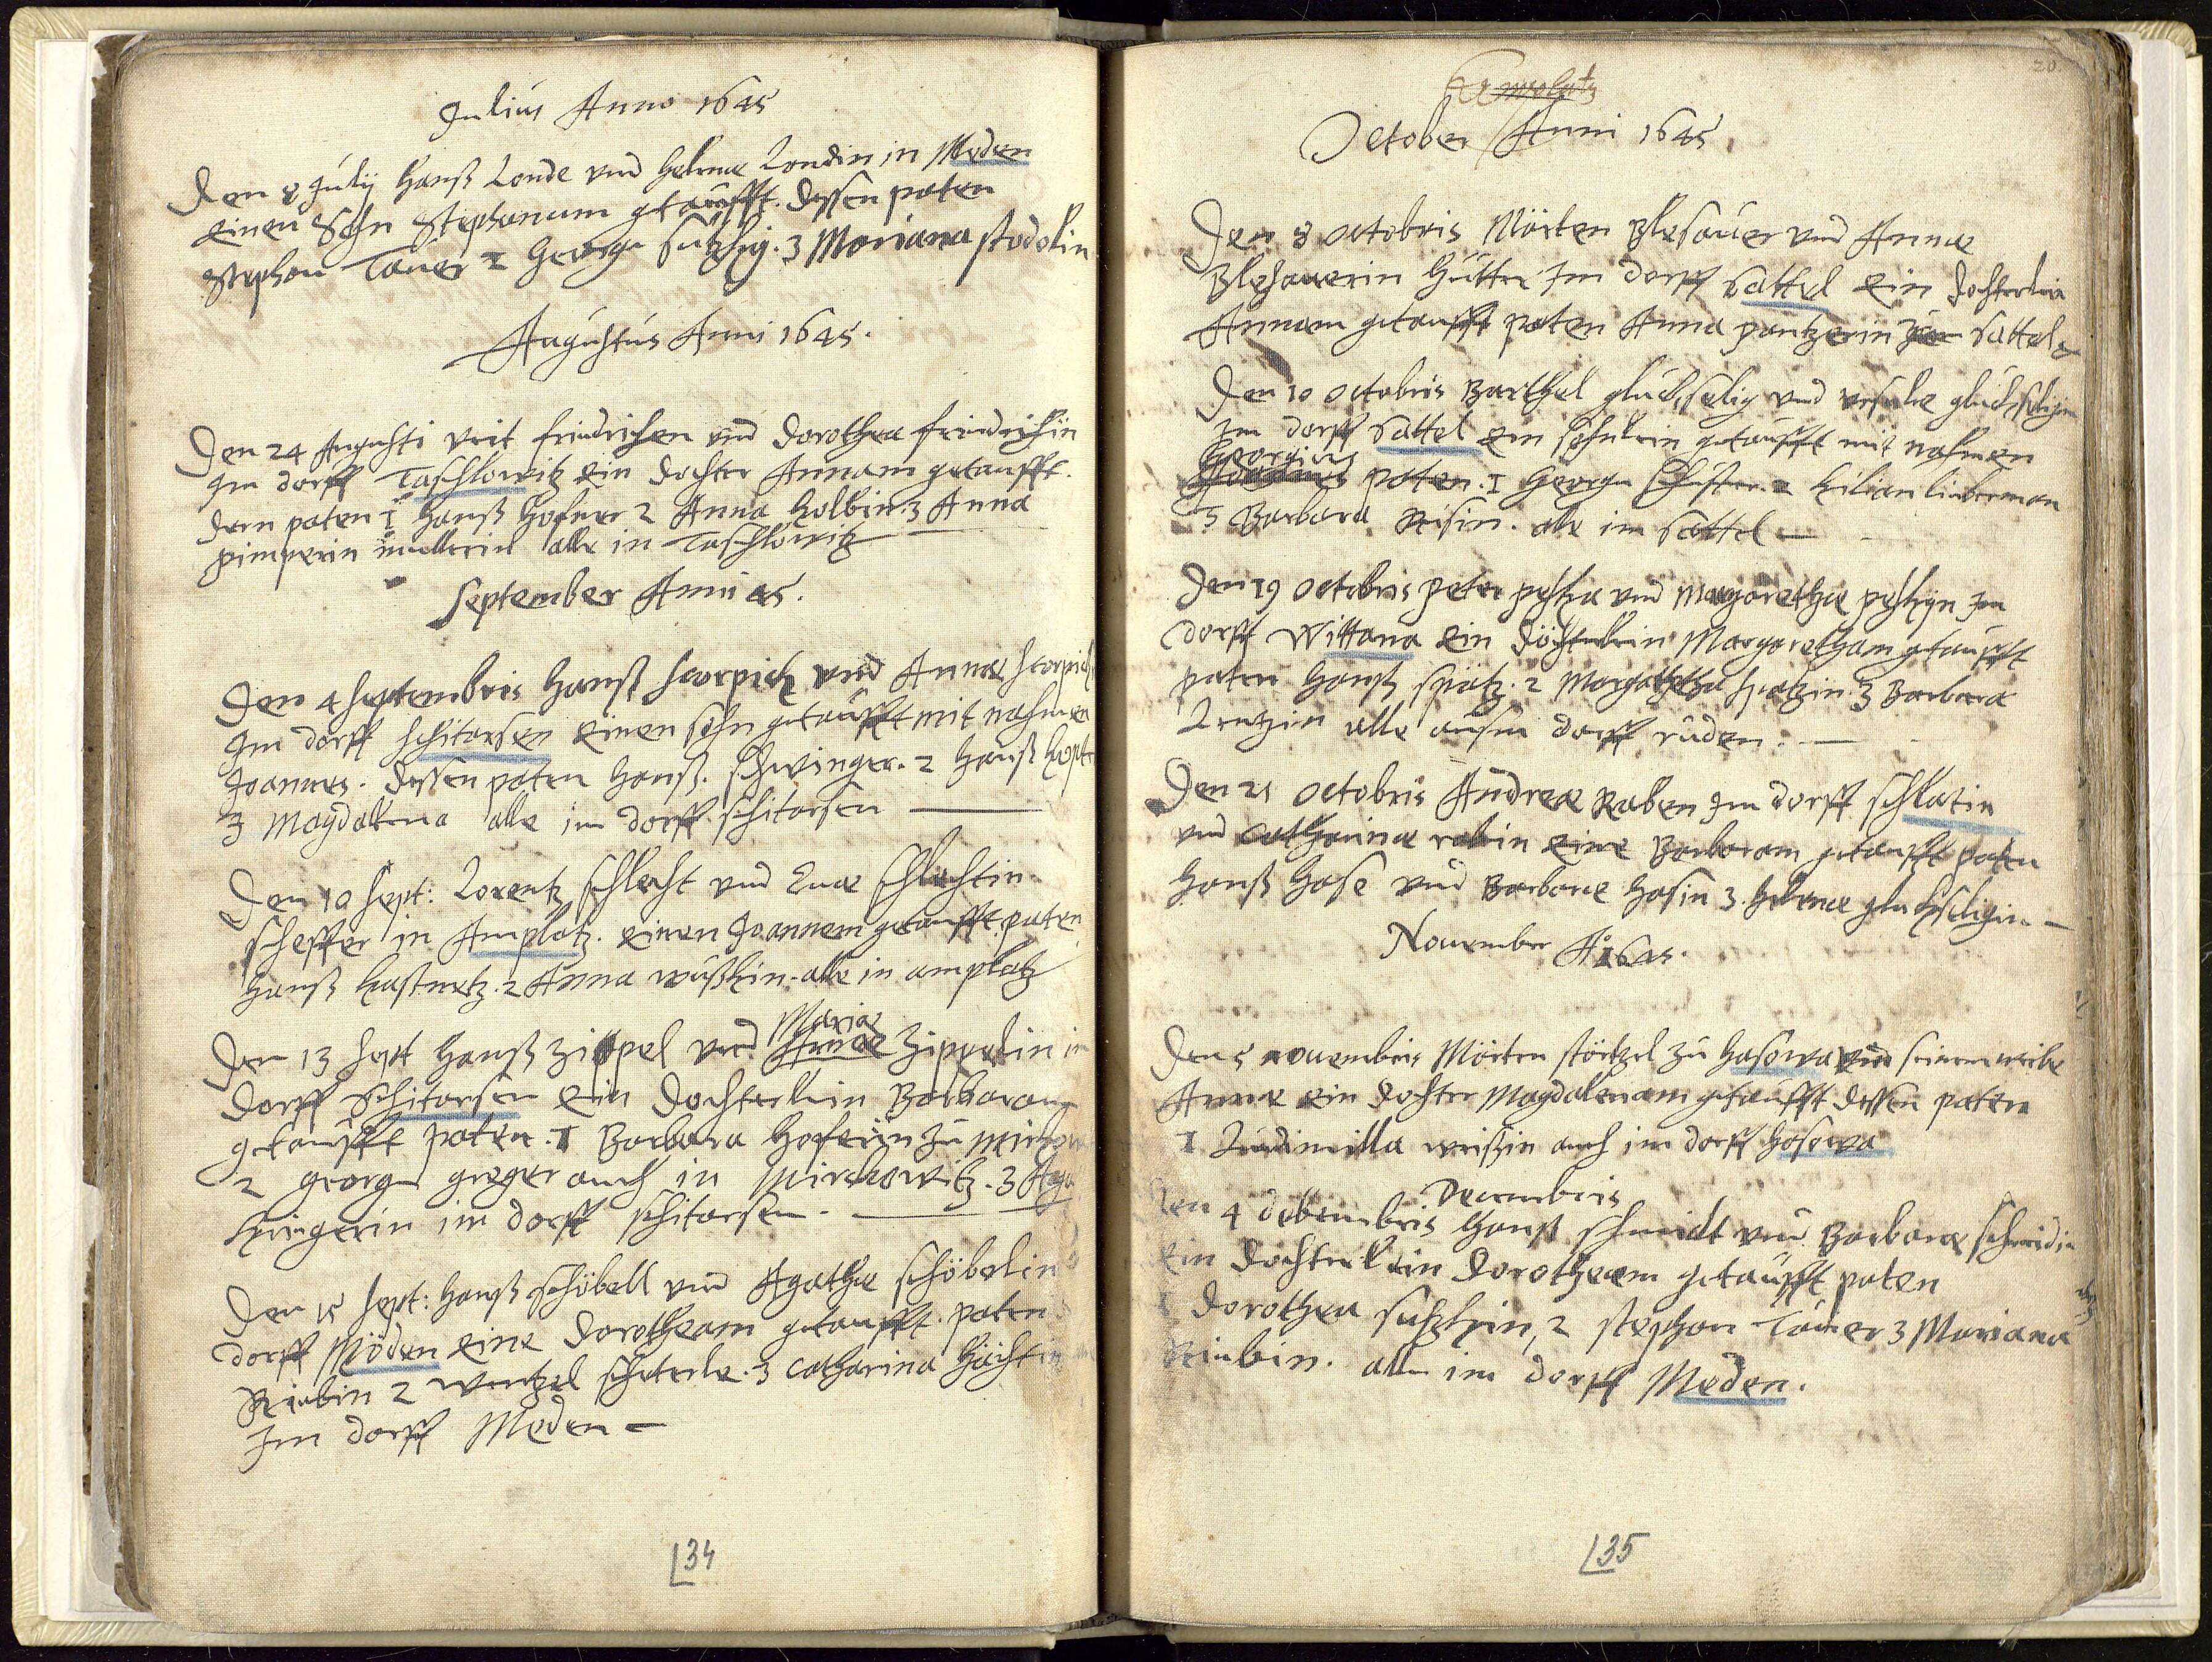 Julius Anno 1645
Den 8 Julij Hanß Londe und Helenae Londin in Meden
einen Sohn Stephanum getaufft. dessen paten
Stephan Taner 2 Georg 3 Mariana stodolin
Augustus Anni 1645.
Den 24 Augusti veit friedrichen und Dorothea friedrichin
Im dorff Taschlowitz ein dochter Annam getaufft.
deren paten 1 Hanß Hofner 2 Anna Holbin. 3 Anna
pimperin müllerin alle in Taschlowitz
September Anni 45.
Den 4 septembris Hanß scorpich und Annae scorpich
Im dorff schitarsen einen sohn getaufft mit nahmen
Joannes. dessen paten Hanß. schwinger. 2 Hanß
3 Magdalena alle im dorff schitarsen
Den 10 sept: Lorentz schlecht und Euae schlechtin
scheffer in Amplatz. einen Joannem getaufft. paten
Hanß 2 Anna alle in amplatz
Mariae
Den 13 sept Hanß Zippel und Annae Zippelin in
dorff schitarsen ein dochterlein Barbaram
getaufft paten. 1 Barbara Hoferin zu
2 georg greger auch in Mirckowitz. 3
Kriegerin im dorff schitarsen.
Den 15 sept: Hanß schöbell und Agathae schöbelin
dorff Möden eine Dorotheam getaufft. paten
Riebin 2 Wentzel 3 Catharina
Im dorff Meden
34
20
October Anni 1645.
Den 8 octobris Märten Blesauer und Annae
Blesauerin Hütter Im dorff Sattel ein dochterlein
Annam getaufft paten Anna pantzerin sattel
Den 10 octobris Barthel glückselig und ursulae glückseligin
Im dorff Sattel ein söhnlein getaufft mit nahmen
Georgius
Joannes paten. 1 Georg schuster. 2 Kilian lieberman
3 Barbara Risin. alle im Sattel
Den 19 octobris Peter und Margarethae Im
dorff Wittana ein döchterlein Margaretham getaufft
paten Hanß spätz. 2 Margaretha spatzin. 3 Barbara
Lentzin alle dorff
Den 21 octobris Andreae Raben Im dorff schlatin
und Catharinae rabin eine Barbaram getaufft paten
Hanß Hase und Barbara Hasin 3. Helenae glückseligin
Nouember Ao 1645.
Den 5 nouembris Märten störtzel zu Hasowa und seinem weibe
Annae ein dochter Magdalenam getaufft dessen paten
1 Ludimilla weißin auch im dorff hosowa
Decembris
Den 4 Hanß schmidt und Barbarae schmidin
ein dochterlein Dorotheam getaufft paten
1 Dorothea 2 stephan Taner 3 Mariana
Riebin. alle im dorff Meden.
35